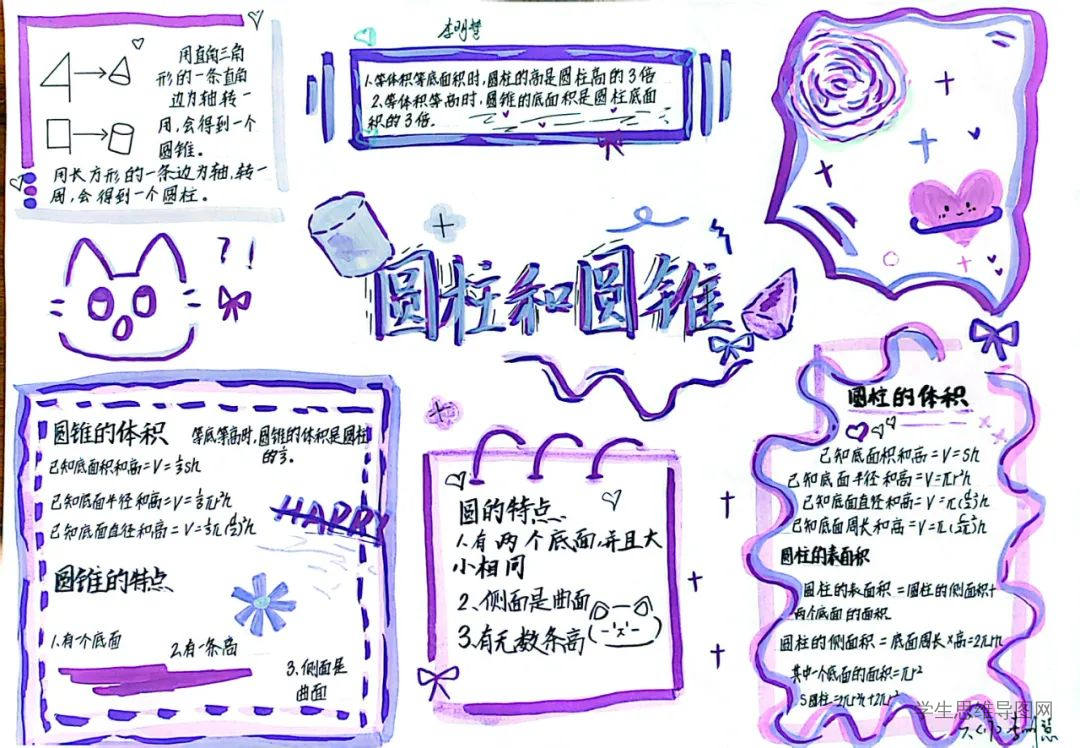 用直角三角
形的一条直角
边为轴转一
周,会得到一个
圆锥。
用长方形的一条边为轴,转一
周,会得到一个圆柱。
1.等体积等底面积时,圆柱的高是圆柱高的3倍
2.等体积等高时,圆锥的底面积是圆柱底面
积的3倍。
? !
圆柱和圆锥
圆锥的体积
等底等高时,圆锥的体积是圆柱
的⅓。
已知底面积和高=V=⅓sh
已知底面半径和高=V=⅓πr²h
已知底面直径和高=V=⅓π(d/2)²h
HAPPY
圆锥的特点
1.有一个底面
2.有一条高
3.侧面是
曲面
圆的特点
1.有两个底面,并且大
小相同
2、侧面是曲面
3.有无数条高
圆柱的体积
已知底面积和高=V=Sh
已知底面半径和高=V=πr²h
已知底面直径和高=V=π(d/2)²h
已知底面周长和高=V=π(c/2π)²h
圆柱的表面积
圆柱的表面积=圆柱的侧面积+
两个底面的面积.
圆柱的侧面积=底面周长×高=2πrh
其中一个底面的面积=πr²
S圆柱=2πrh+2πr²
学生思维导图网